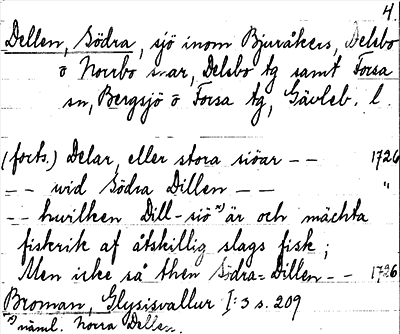 4.
Dellen, Södra, sjö inom Bjuråkers, Delsbo
o Norrbo snar, Delsbo tg samt Forsa
sn, Bergsjö o Forsa tg, Gävleb. l.
(forts.) Delar, eller stora siöar -- 1726
-- wid Södra Dillen -- "
-- hwilken Dill-siö x) är och mächta
fiskrik af åtskillig slags fisk;
Men icke så then Södra=Dillen-- 1726
Broman, Glysisvallur I:3 s. 209
x) näml. Norra Dellen.